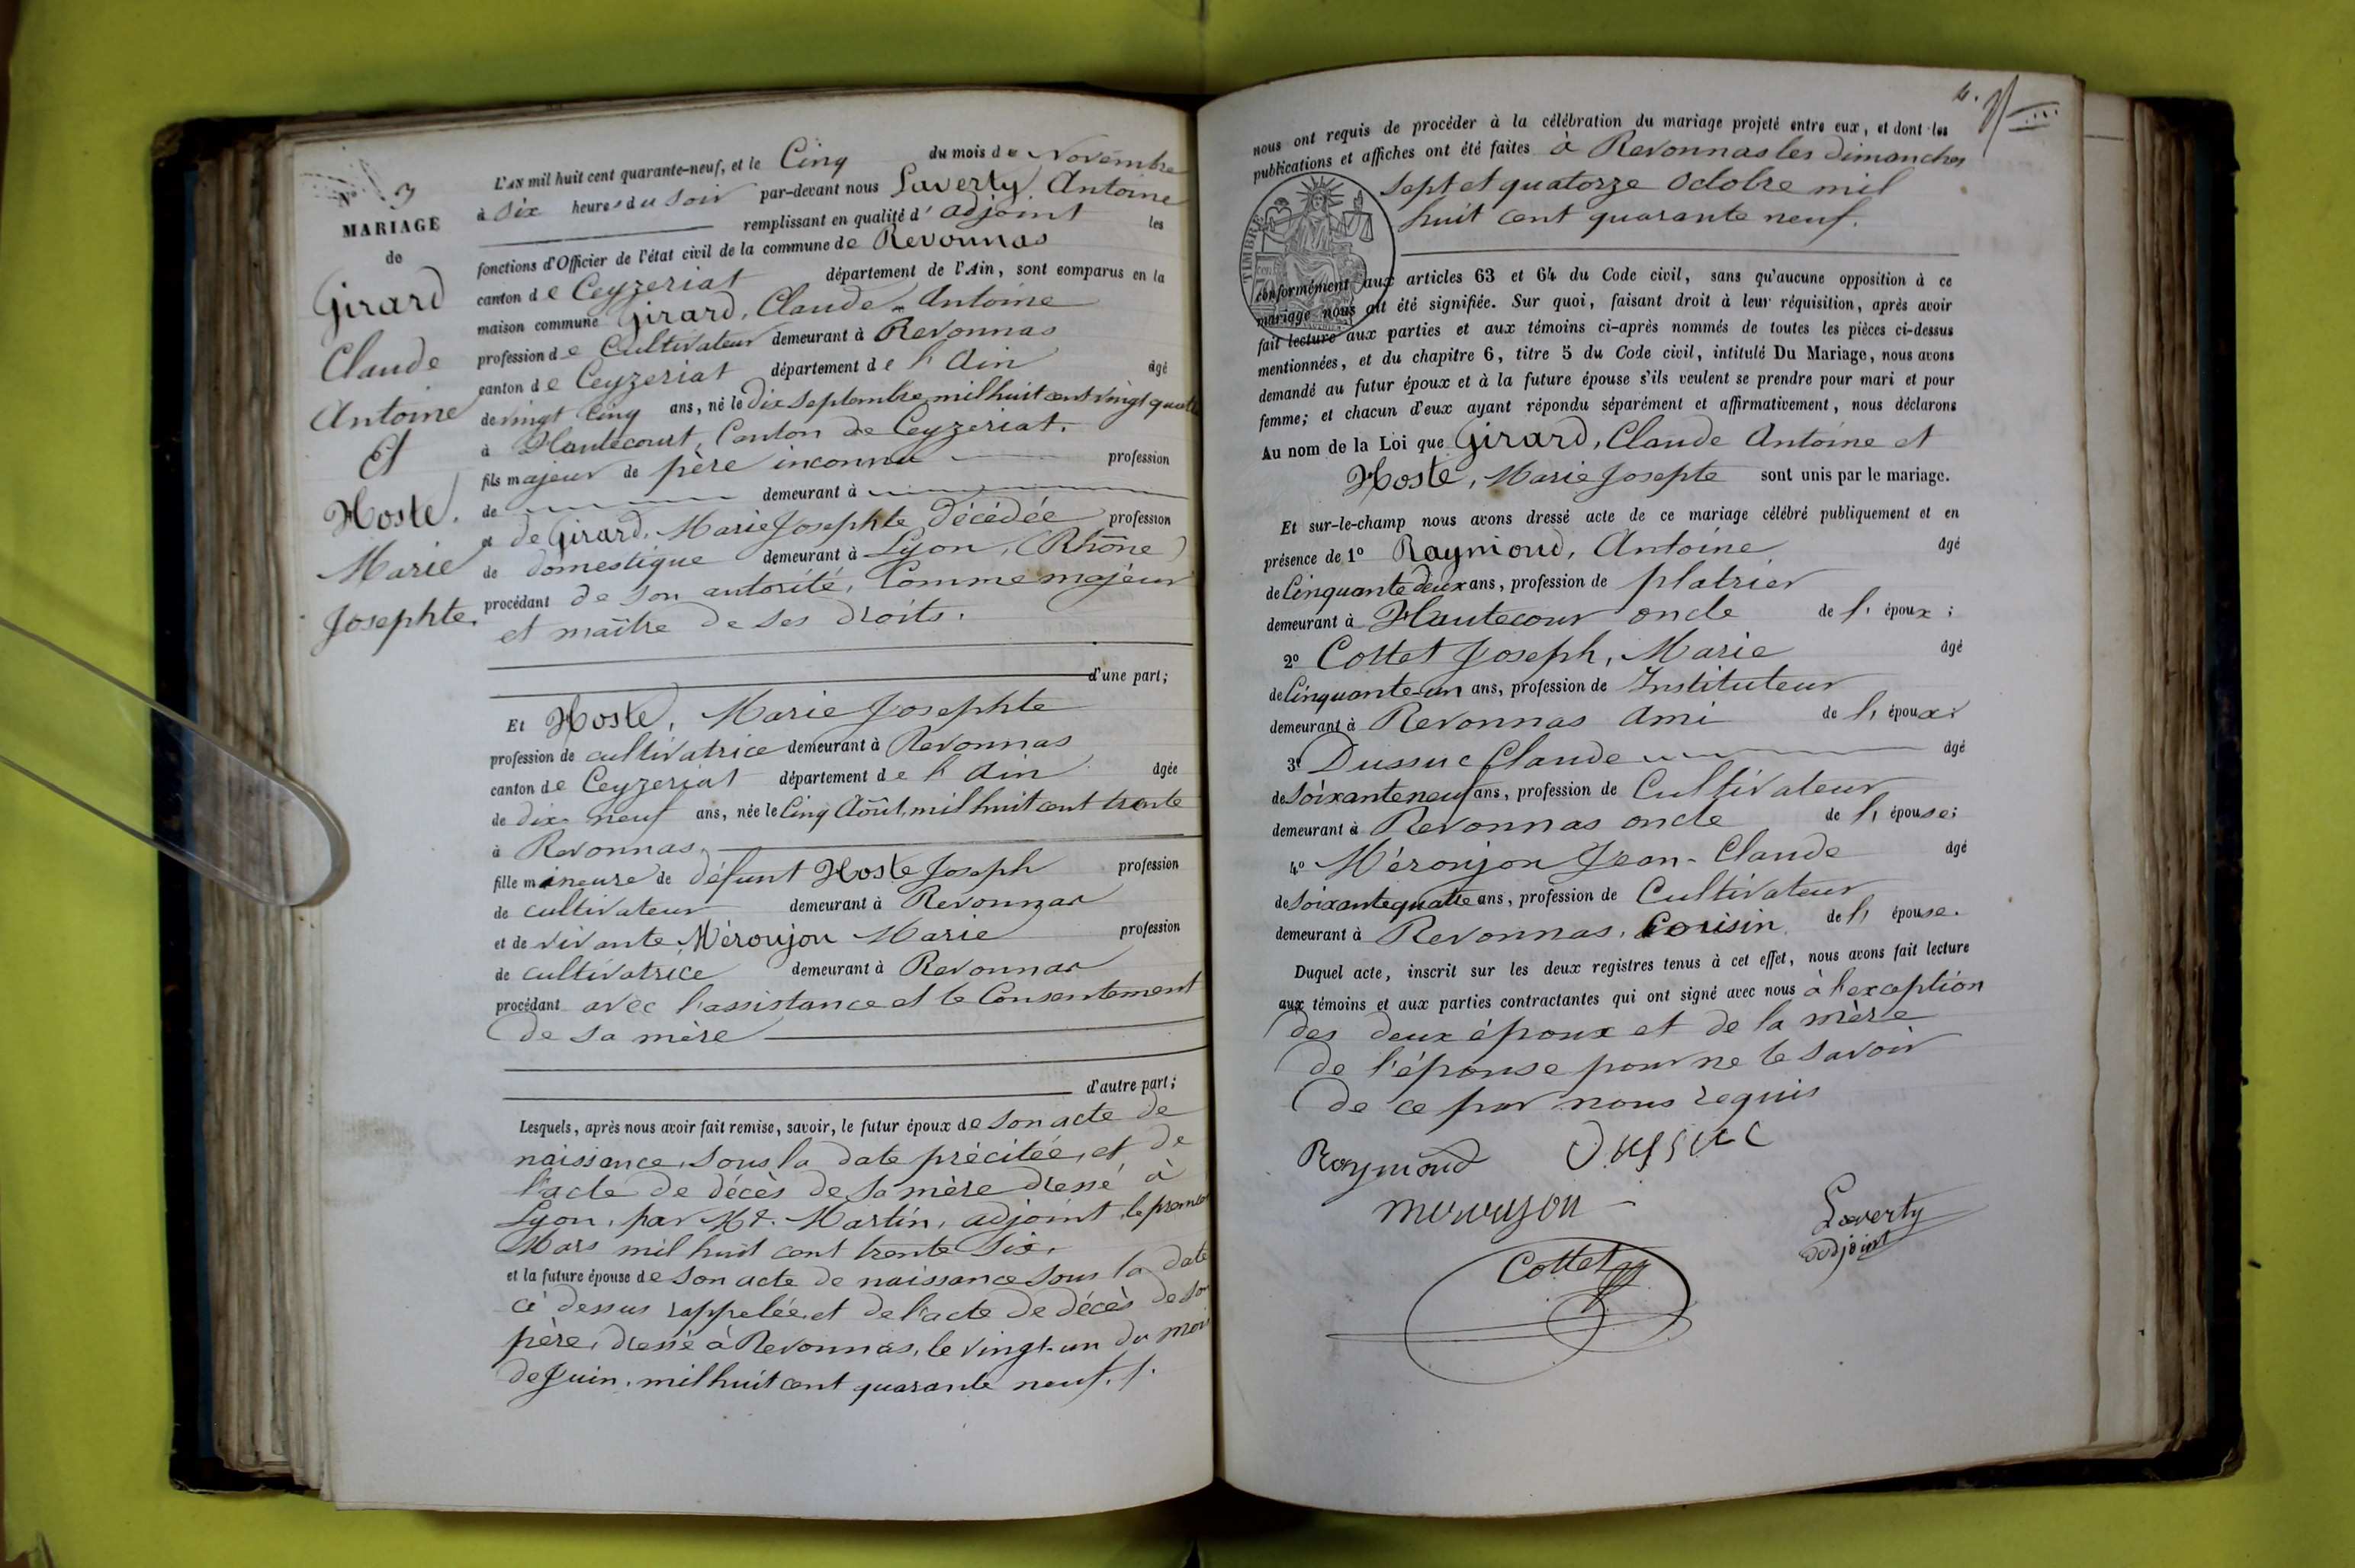 N° 3
MARIAGE
de
Girard
Claude
Antoine
Et
Hoste,
Marie
Josephte.
L'AN mil huit cent quarante-neuf, et le Cinq du mois de Novembre
à Six heures du Soir par-devant nous Laverty Antoine
remplissant en qualité d'adjoint les
fonctions d'Officier de l'état civil de la commune de Revonnas
canton de Ceyzeriat département de l'Ain, sont comparus en la
maison commune Girard, Claude-Antoine
profession de Cultivateur demeurant à Revonnas
canton de Ceyzeriat département de l'Ain âgé
de vingt Cinq ans, né le Dix Septembre mil huit cent vingt quatre
à Hautecourt, Canton de Ceyzeriat.
fils majeur de père inconnu profession
de demeurant à
et de Girard, Marie Josephte Décédée profession
de domestique demeurant à Lyon, (Rhône)
procédant de son autorité, Comme majeur
et maître de ses droits.
d'une part;
Et Hoste, Marie Josephte
profession de cultivatrice demeurant à Revonnas
canton de Ceyzeriat département de l'Ain âgée
de dix-neuf ans, née le Cinq Août, mil huit cent trente
à Revonnas,
fille mineure de défunt Hoste Joseph profession
de cultivateur demeurant à Revonnas
et de vivante Méroujon Marie profession
de cultivatrice demeurant à Revonnas
procédant avec l'assistance et le Consentement
de sa mère
d'autre part;
Lesquels, après nous avoir fait remise, savoir, le futur époux de son acte de
naissance, sous la date précitée, et de
l'acte de décès de sa mère dressé à
Lyon, par Mr. Martin, adjoint, le premier
Mars mil huit cent trente Six,
et la future épouse de son acte de naissance sous la date
ci dessus rappelée, et de l'acte de décès de son
père, dressé à Revonnas, le vingt-un du mois
de Juin, mil huit cent quarante neuf. /.
4.
nous ont requis de procéder à la célébration du mariage projeté entre eux, et dont les
publications et affiches ont été faites à Revonnas les dimanches
sept et quatorze Octobre mil
huit cent quarante neuf.
TIMBRE
conformément aux articles 63 et 64 du Code civil, sans qu'aucune opposition à ce
mariage nous ait été signifiée. Sur quoi, faisant droit à leur réquisition, après avoir
fait lecture aux parties et aux témoins ci-après nommés de toutes les pièces ci-dessus
mentionnées, et du chapitre 6, titre 5 du Code civil, intitulé Du Mariage, nous avons
demandé au futur époux et à la future épouse s'ils veulent se prendre pour mari et pour
femme; et chacun d'eux ayant répondu séparément et affirmativement, nous déclarons
Au nom de la Loi que Girard, Claude Antoine et
Hoste, Marie Josepte sont unis par le mariage.
Et sur-le-champ nous avons dressé acte de ce mariage célébré publiquement et en
présence de 1° Raymond, Antoine âgé
de Cinquante deux ans, profession de platrier
demeurant à Hautecour oncle de l'époux;
2° Cottet Joseph, Marie âgé
de Cinquante-un ans, profession de Instituteur
demeurant à Revonnas Ami de l'époux;
3° Dussuc Claude âgé
de Soixante neuf ans, profession de Cultivateur
demeurant à Revonnas oncle de l'épouse;
4° Méroujon Jean-Claude âgé
de Soixante quatre ans, profession de Cultivateur
demeurant à Revonnas, Cousin de l'épouse.
Duquel acte, inscrit sur les deux registres tenus à cet effet, nous avons fait lecture
aux témoins et aux parties contractantes qui ont signé avec nous à l'exception
des deux époux et de la mère
de l'épouse pour ne le savoir
de ce par nous requis
Raymond Dussuc
Laverty
adjoint
Cottet